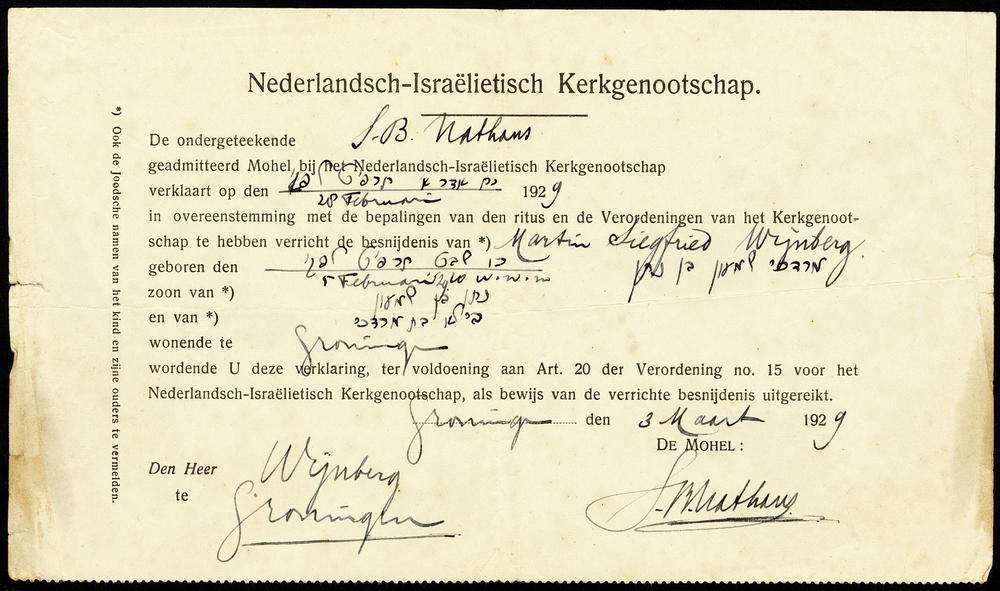 Nederlandsch-Israëlietisch Kerkgenootschap.
De ondergeteekende S. B. Nathans
geadmitteerd Mohel bij het Nederlandsch-Israëlietisch Kerkgenootschap
verklaart op den יח אדר א׳ תרפ״ט לפ״ק 1929
28 Februari
in overeenstemming met de bepalingen van den ritus en de Verordeningen van het Kerkgenoot-
schap te hebben verricht de besnijdenis van *) Martin Siegfried Wijnberg.
מרדכי שמעון בן נתן
geboren den כו שבט תרפ״ט לפ״ק
5 Februari
zoon van *) נתן בן שמעון
en van *) ביילא בת מרדכי
wonende te Groningen
wordende U deze verklaring, ter voldoening aan Art. 20 der Verordening no. 15 voor het
Nederlandsch-Israëlietisch Kerkgenootschap, als bewijs van de verrichte besnijdenis uitgereikt.
Groningen den 3 Maart 1929
DE MOHEL:
Den Heer Wijnberg
te Groningen
S. B. Nathans
*) Ook de Joodsche namen van het kind en zijne ouders te vermelden.